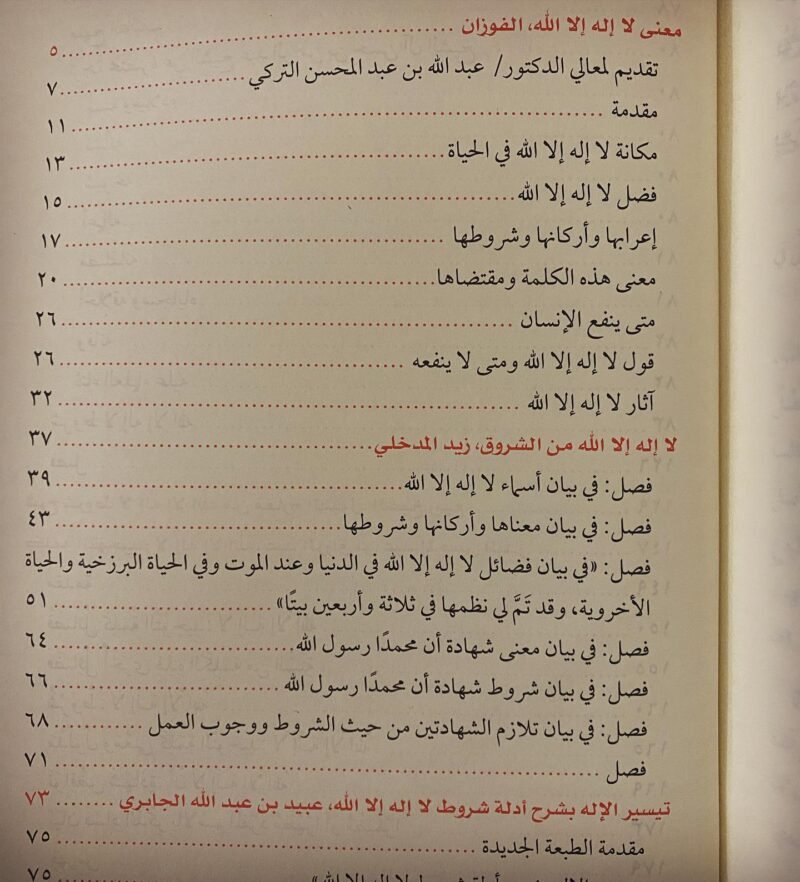 معنى لا إله إلا الله، الفوزان ... ٥
تقديم لمعالي الدكتور/ عبد الله بن عبد المحسن التركي ... ٧
مقدمة ... ١١
مكانة لا إله إلا الله في الحياة ... ١٣
فضل لا إله إلا الله ... ١٥
إعرابها وأركانها وشروطها ... ١٧
معنى هذه الكلمة ومقتضاها ... ٢٠
متى ينفع الإنسان ... ٢٦
قول لا إله إلا الله ومتى لا ينفعه ... ٢٦
آثار لا إله إلا الله ... ٣٢
لا إله إلا الله من الشروق، زيد المدخلي ... ٣٧
فصل: في بيان أسماء لا إله إلا الله ... ٣٩
فصل: في بيان معناها وأركانها وشروطها ... ٤٣
فصل: «في بيان فضائل لا إله إلا الله في الدنيا وعند الموت وفي الحياة البرزخية والحياة
الأخروية، وقد تَمَّ لي نظمها في ثلاثة وأربعين بيتًا» ... ٥١
فصل: في بيان معنى شهادة أن محمدًا رسول الله ... ٦٤
فصل: في بيان شروط شهادة أن محمدًا رسول الله ... ٦٦
فصل: في بيان تلازم الشهادتين من حيث الشروط ووجوب العمل ... ٦٨
فصل ... ٧١
تيسير الإله بشرح أدلة شروط لا إله إلا الله، عبيد بن عبد الله الجابري ... ٧٣
مقدمة الطبعة الجديدة ... ٧٥
لا إله إلا الله» ... ٧٥